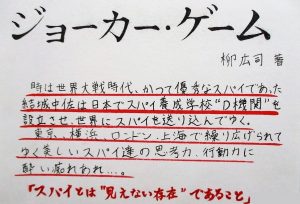 ジョーカー・ゲーム
柳広司 著
時は世界大戦時代、かつて優秀なスパイであった
結城中佐は日本でスパイ養成学校"D機関"を
設立させ、世界にスパイを送り込んでゆく。
東京、横浜、ロンドン、上海で繰り広げられて
ゆく美しいスパイ達の思考力、行動力に
酔い痴れあれ…。
「スパイとは"見えない存在"であること」